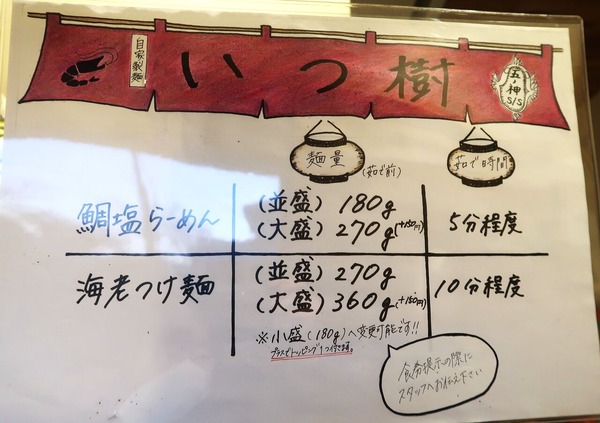 自家製麺
いつ樹
五ノ神
S/S
麺量
(茹で前)
茹で時間
鯛塩らーめん
(並盛) 180g
(大盛) 270g (+150円)
5分程度
海老つけ麺
(並盛) 270g
(大盛) 360g (+150円)
10分程度
※小盛(180g)へ変更可能です!!
プラスでトッピング1つ付きます。
食券提示の際に
スタッフへお伝え下さい